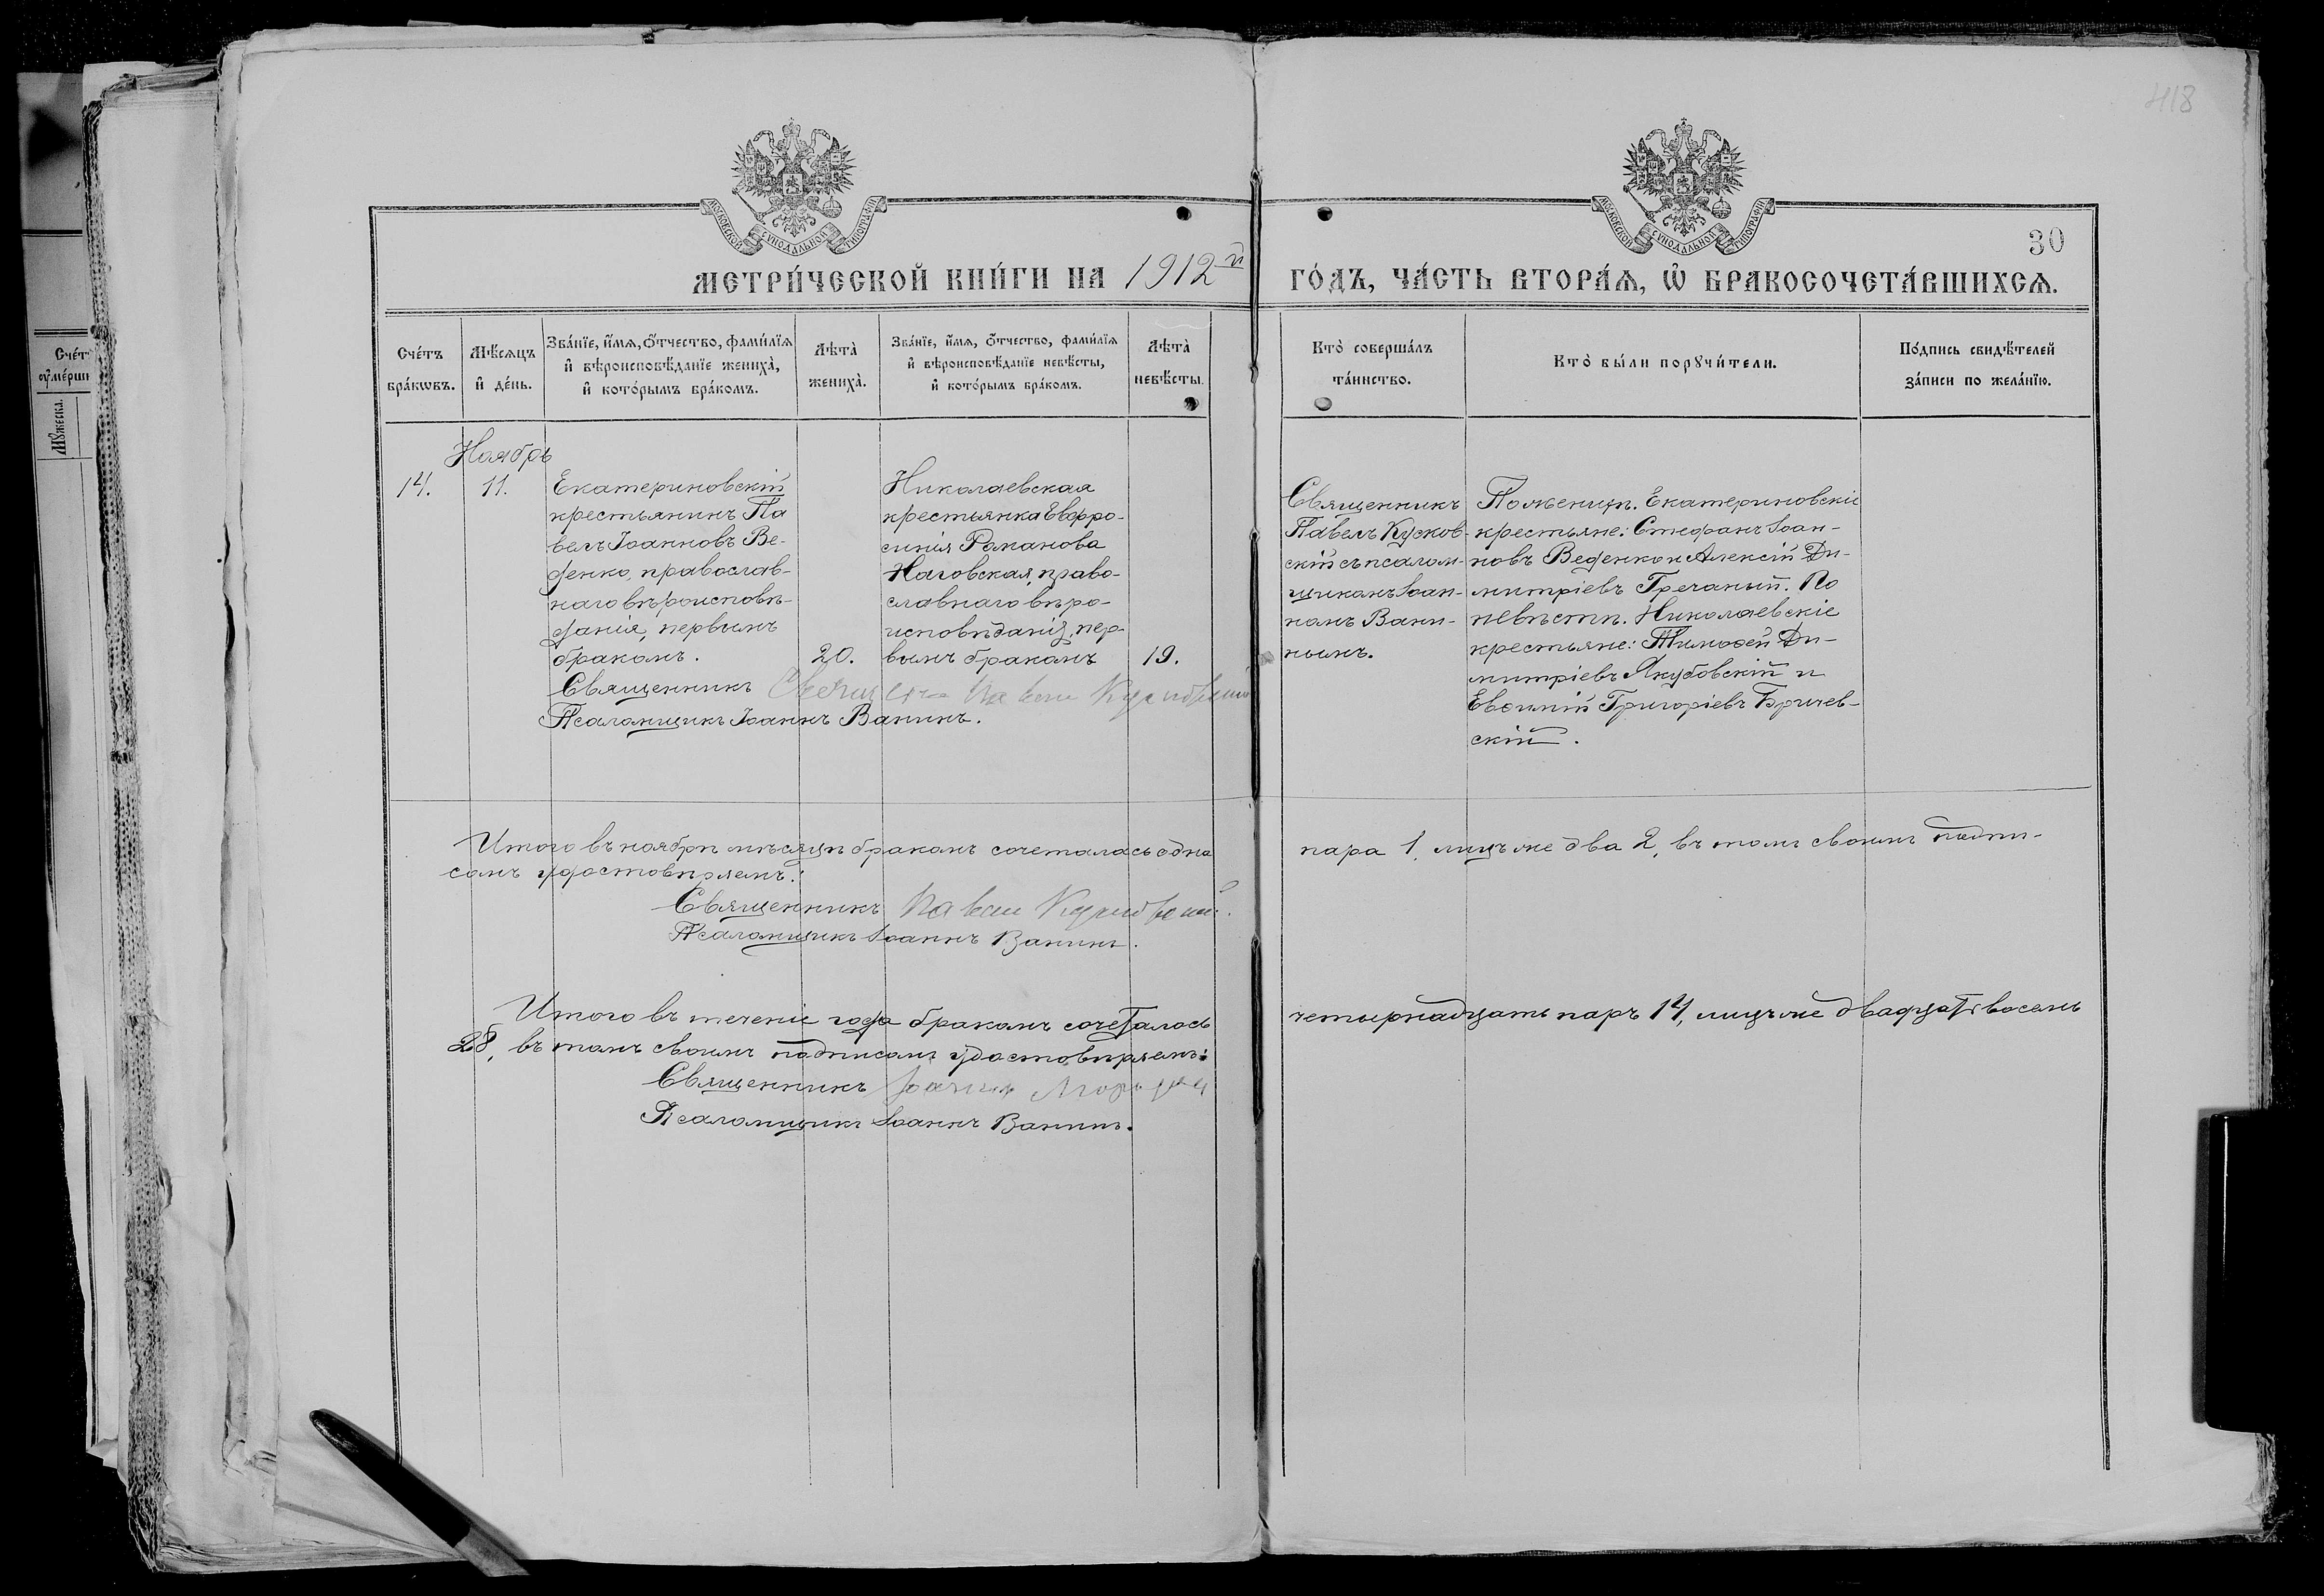 418
МОСКОВСКОЙ СѴНОДАЛЬНОЙ ТИПОГРАФІИ
МОСКОВСКОЙ СѴНОДАЛЬНОЙ ТИПОГРАФІИ
30
МЕТРИ́ЧЕСКОЙ КНИ́ГИ НА 1912й ГО́ДЪ, ЧА́СТЬ ВТОРА́Ѧ, Ѽ БРАКОСОЧЕТА́ВШИХСѦ.
Сче́тъ
бра́кѡвъ.
Мѣ́сѧцъ
и҆ де́нь.
Зва́нїе, и҆́мѧ, ѻ҆́тчество, фами́лїѧ
и҆ вѣроисповѣ́данїе жениха̀,
и҆ кото́рымъ бра́комъ.
Лѣта̀
жениха̀.
Зва́нїе, и҆́мѧ, ѻ҆́тчество, фами́лїѧ
и҆ вѣроисповѣ́данїе невѣ́сты,
и҆ кото́рымъ бра́комъ.
Лѣта̀
невѣ́сты.
Кто̀ соверша́лъ
та́инство.
Кто̀ бы́ли порꙋчи́тели.
По́дпись свидѣ́телей
за́писи по жела́нїю.
Ноябрь
14.
11.
Екатериновскій
крестьянинъ Па
велъ Іоанновъ Ве-
денко, православ-
наго вѣроисповѣ-
данія, первымъ
бракомъ.
20.
Николаевская
крестьянка Евфро-
синія Романова
Наговская, право-
славнаго вѣро-
исповѣданія, пер-
вымъ бракомъ
19.
Священникъ
Павелъ Кусков-
скій съ псалом-
щикомъ Іоан-
номъ Вани-
нымъ.
По женихѣ. Екатериновскіе
крестьяне: Стефанъ Іоан-
новъ Веденко и Алексій Ди-
митріевъ Гречаный. По
невѣстѣ. Николаевскіе
крестьяне: Тимофей Ди-
митріевъ Якубовскій и
Евѳимій Григоріевъ Бричев-
скій.
Священникъ
Псаломщикъ Іоаннъ Ванинъ.
Итого въ ноябрѣ мѣсяцѣ бракомъ сочеталась одна пара 1, лицъ же два 2, въ томъ своимъ подпи-
сомъ удостовѣряемъ:
Священникъ Павелъ
Псаломщикъ Іоаннъ Ванинъ.
Итого въ теченіе года бракомъ сочеталось четырнадцать паръ 14, лицъ же двадцать восемь
28, въ томъ своимъ подписомъ удостовѣряемъ:
Священникъ Іоаннъ
Псаломщикъ Іоаннъ Ванинъ.
Сче́т
ᲂу҆ме́рши
Мꙋ́жеска.